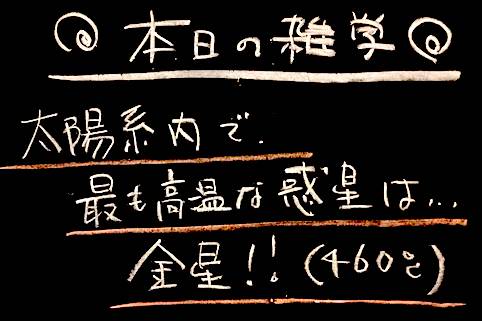 本日の雑学
太陽系内で
最も高温な惑星は…
金星!!(460℃)